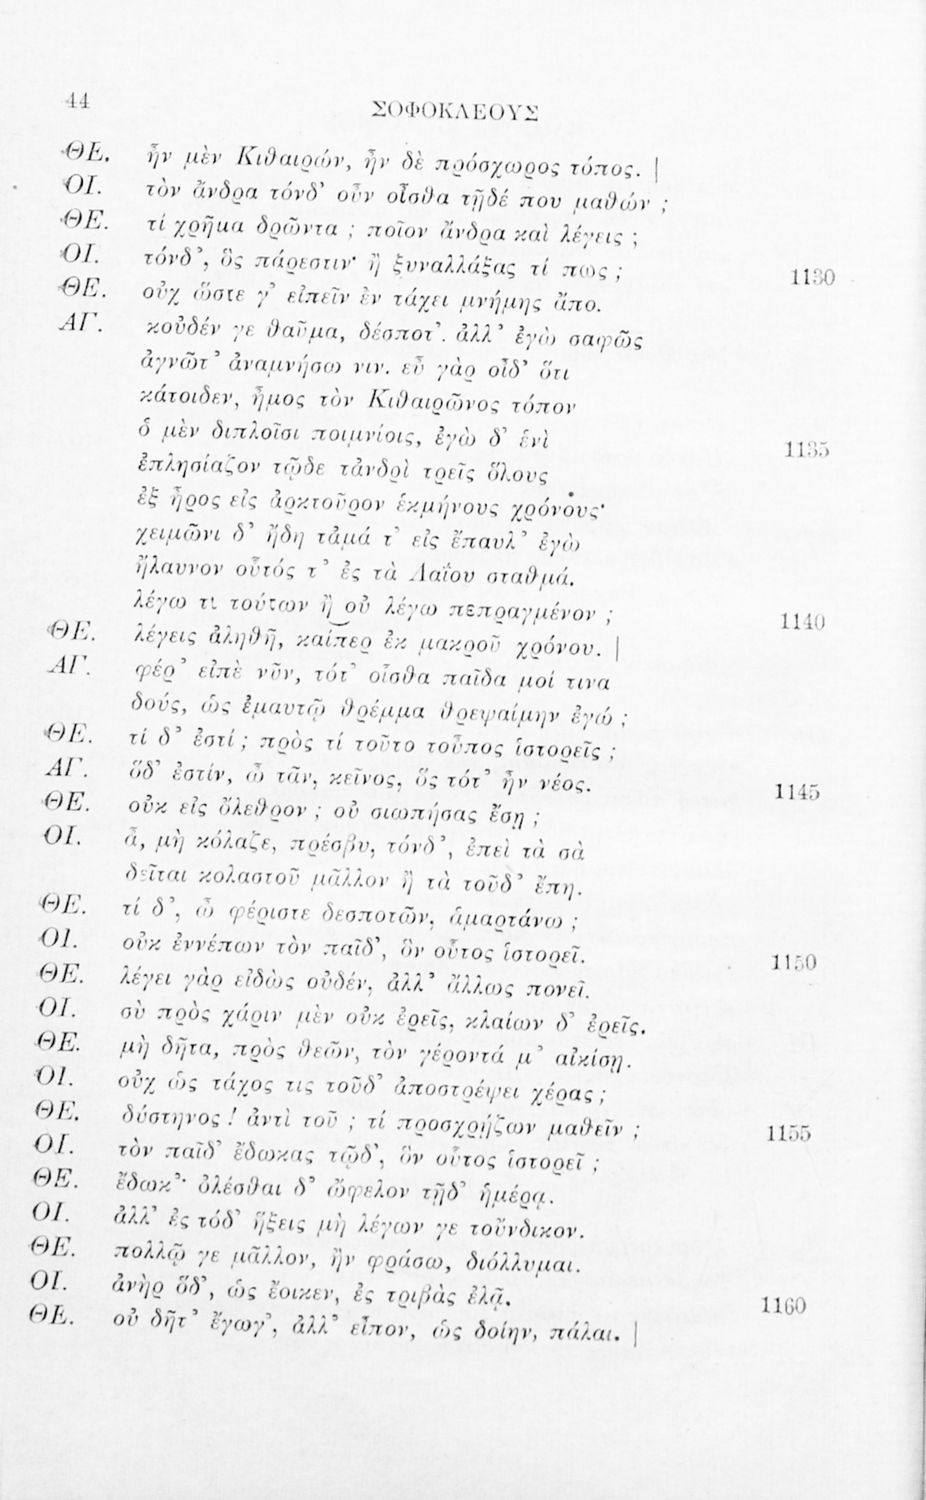 44
ΣΟΦΟΚΛΕΟΥΣ
ΘΕ. ἦν μὲν Κιθαιρών, ἦν δὲ πρόσχωρος τόπος. |
ΟΙ. τὸν ἄνδρα τόνδ' οὖν οἶσθα τῇδέ που μαθών ;
ΘΕ. τί χρῆμα δρῶντα ; ποῖον ἄνδρα καὶ λέγεις ;
ΟΙ. τόνδ', ὃς πάρεστιν· ἢ ξυναλλάξας τί πως ; 1130
ΘΕ. οὐχ ὥστε γ' εἰπεῖν ἐν τάχει μνήμης ἄπο.
ΑΓ. κοὐδέν γε θαῦμα, δέσποτ'. ἀλλ' ἐγὼ σαφῶς
ἀγνῶτ' ἀναμνήσω νιν. εὖ γὰρ οἶδ' ὅτι
κάτοιδεν, ἦμος τὸν Κιθαιρῶνος τόπον
ὁ μὲν διπλοῖσι ποιμνίοις, ἐγὼ δ' ἑνὶ 1135
ἐπλησίαζον τῷδε τἀνδρὶ τρεῖς ὅλους
ἐξ ἦρος εἰς ἀρκτοῦρον ἑκμήνους χρόνους·
χειμῶνι δ' ἤδη τἀμά τ' εἰς ἔπαυλ' ἐγὼ
ἤλαυνον οὗτός τ' ἐς τὰ Λαΐου σταθμά.
λέγω τι τούτων ἢ οὐ λέγω πεπραγμένον ; 1140
ΘΕ. λέγεις ἀληθῆ, καίπερ ἐκ μακροῦ χρόνου. |
ΑΓ. φέρ' εἰπὲ νῦν, τότ' οἶσθα παῖδα μοί τινα
δούς, ὡς ἐμαυτῷ θρέμμα θρεψαίμην ἐγώ ;
ΘΕ. τί δ' ἐστί ; πρὸς τί τοῦτο τοὖπος ἱστορεῖς ;
ΑΓ. ὅδ' ἐστίν, ὦ τᾶν, κεῖνος, ὃς τότ' ἦν νέος. 1145
ΘΕ. οὐκ εἰς ὄλεθρον ; οὐ σιωπήσας ἔσῃ ;
ΟΙ. ἆ, μὴ κόλαζε, πρέσβυ, τόνδ', ἐπεὶ τὰ σὰ
δεῖται κολαστοῦ μᾶλλον ἢ τὰ τοῦδ' ἔπη.
ΘΕ. τί δ', ὦ φέριστε δεσποτῶν, ἁμαρτάνω ;
ΟΙ. οὐκ ἐννέπων τὸν παῖδ', ὃν οὗτος ἱστορεῖ. 1150
ΘΕ. λέγει γὰρ εἰδὼς οὐδέν, ἀλλ' ἄλλως πονεῖ.
ΟΙ. σὺ πρὸς χάριν μὲν οὐκ ἐρεῖς, κλαίων δ' ἐρεῖς.
ΘΕ. μὴ δῆτα, πρὸς θεῶν, τὸν γέροντά μ' αἰκίσῃ.
ΟΙ. οὐχ ὡς τάχος τις τοῦδ' ἀποστρέψει χέρας ;
ΘΕ. δύστηνος ! ἀντὶ τοῦ ; τί προσχρῄζων μαθεῖν ; 1155
ΟΙ. τὸν παῖδ' ἔδωκας τῷδ', ὃν οὗτος ἱστορεῖ ;
ΘΕ. ἔδωκ'· ὀλέσθαι δ' ὤφελον τῇδ' ἡμέρᾳ.
ΟΙ. ἀλλ' ἐς τόδ' ἥξεις μὴ λέγων γε τοὔνδικον.
ΘΕ. πολλῷ γε μᾶλλον, ἢν φράσω, διόλλυμαι.
ΟΙ. ἀνὴρ ὅδ', ὡς ἔοικεν, ἐς τριβὰς ἐλᾷ. 1160
ΘΕ. οὐ δῆτ' ἔγωγ', ἀλλ' εἶπον, ὡς δοίην, πάλαι. |